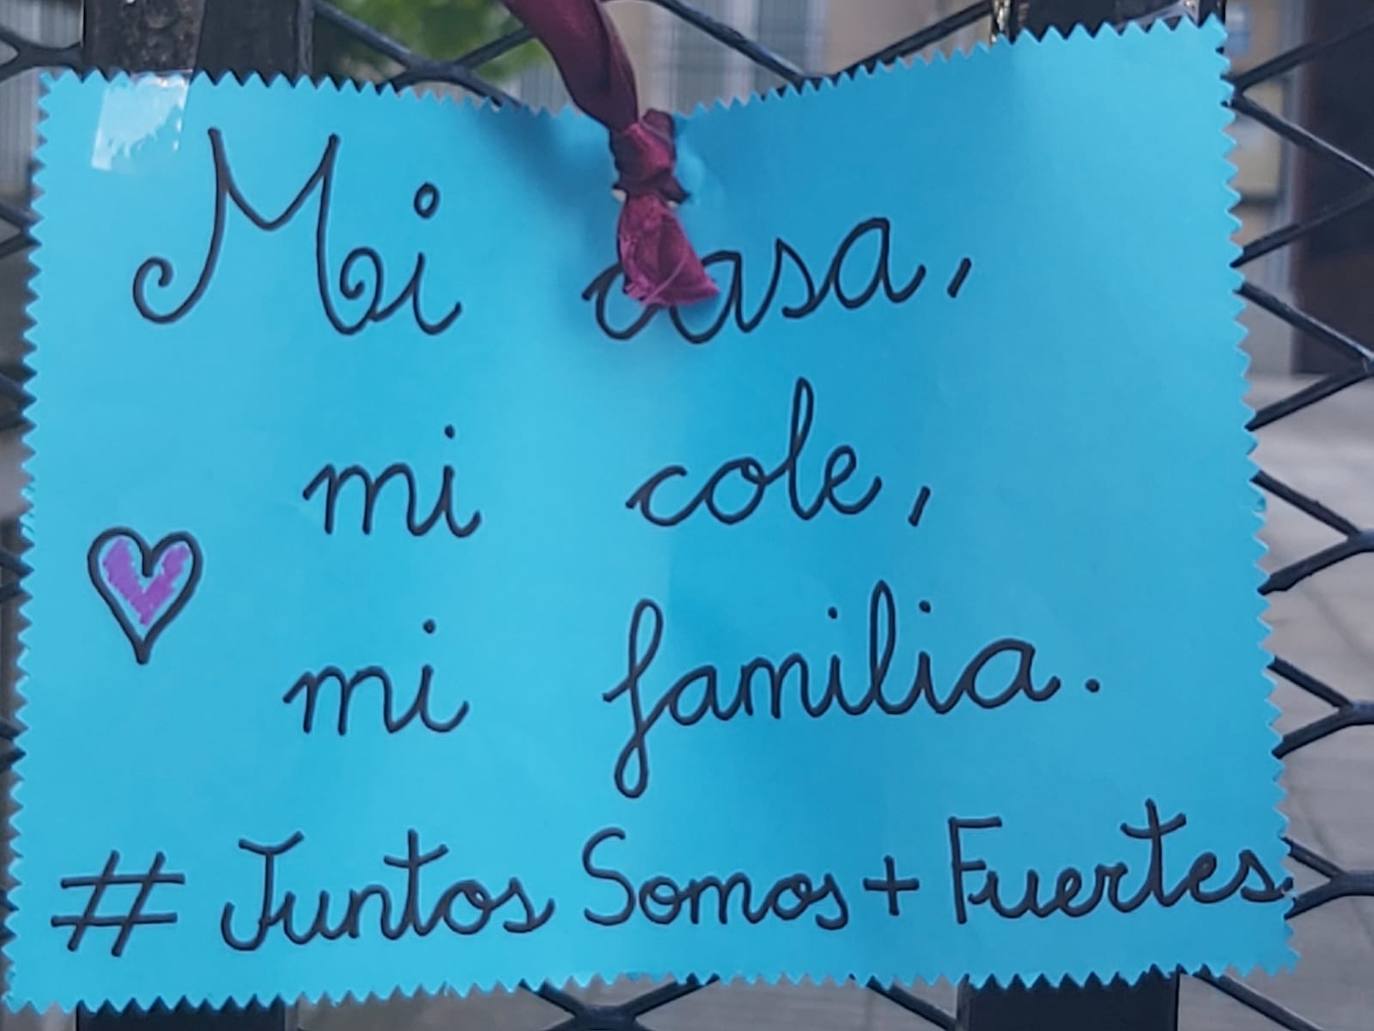 Mi casa,
mi cole,
mi familia.
# Juntos Somos + Fuertes.